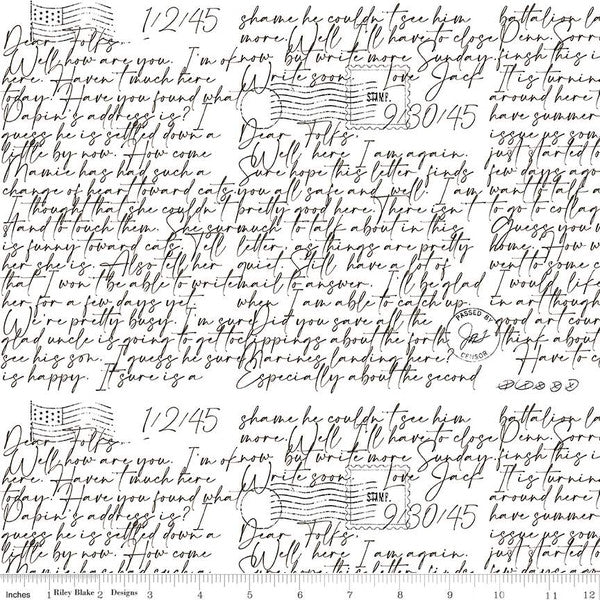 1/2/45
Dear Folks,
Well how are you. I'm ok
here. Haven't much here
today. Have you found wha
Papin's address is? I
guess he is settled down a
little by now. How come
Mamie has had such a
change of heart toward cats.
I thought that she couldn't
stand to touch them. She sur
is funny toward cats. Tell
her she is. Also tell her
that I won't be able to write
her for a few days yet.
We're pretty busy. I'm sure
glad uncle is going to get to
see his son. I guess he sure
is happy. It sure is a
shame he couldn't see him
more. Well I'll have to close
now but write more Sunday.
Write soon. Love Jack
STAMP
9/30/45
Dear Folks,
Well, here I am again.
Sure hope this letter finds
you all safe and well. I am
pretty good here. There isn't
much to talk about in this
letter, as things are pretty
quiet. Still have a lot of
mail to answer. I'll be glad
when I am able to catch up.
Did you save all the
clippings about the forth
Marines landing here?
Especially about the second
PASSED BY
CENSOR
battalion la
Penn. Sorro
finsh this i
It is turnin
around here t
have summer
issue us som
just started to
few days ago
want to talk a
to go to collag
Guess you w
home. How w
went to some c
I would life
in art though
good art cour
think about
Have to c
1/2/45
Dear Folks,
Well how are you. I'm ok
here. Haven't much here
today. Have you found wha
Papin's address is? I
guess he is settled down a
little by now. How come
Mamie has had such a
shame he couldn't see him
more. Well I'll have to close
now but write more Sunday.
Write soon. Love Jack
STAMP
9/30/45
Dear Folks,
Well, here I am again.
Sure hope this letter finds
battalion la
Penn. Sorro
finsh this i
It is turnin
around here t
have summer
issue us som
just started to
few days ago
Inches 1 Riley Blake 2 Designs 3 4 5 6 7 8 9 10 11 12